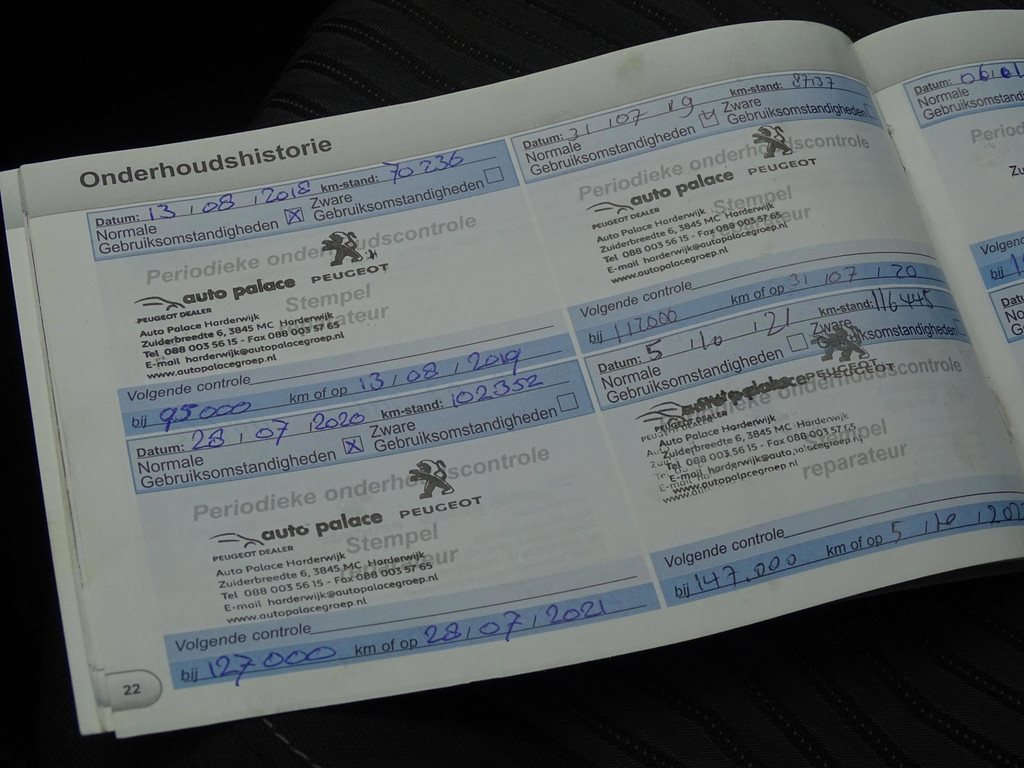 Onderhoudshistorie
Datum: 13 / 08 / 2018 km-stand: 70236
Normale Gebruiksomstandigheden ☒ Zware Gebruiksomstandigheden ☐
Periodieke onderhoudscontrole
PEUGEOT
auto palace
PEUGEOT DEALER
Stempel
reparateur
Auto Palace Harderwijk
Zuiderbreedte 6, 3845 MC Harderwijk
Tel 088 003 56 15 - Fax 088 003 57 65
E-mail harderwijk@autopalacegroep.nl
www.autopalacegroep.nl
Volgende controle
bij 95000 km of op 13 / 08 / 2019
Datum: 28 / 07 / 2020 km-stand: 102352
Normale Gebruiksomstandigheden ☒ Zware Gebruiksomstandigheden ☐
Periodieke onderhoudscontrole
PEUGEOT
auto palace
PEUGEOT DEALER
Stempel
reparateur
Auto Palace Harderwijk
Zuiderbreedte 6, 3845 MC Harderwijk
Tel 088 003 56 15 - Fax 088 003 57 65
E-mail harderwijk@autopalacegroep.nl
www.autopalacegroep.nl
Volgende controle
bij 127000 km of op 28 / 07 / 2021
22
Datum: 31 / 07 / 19 km-stand: 87137
Normale Gebruiksomstandigheden ☑ Zware Gebruiksomstandigheden
Periodieke onderhoudscontrole
PEUGEOT
auto palace
PEUGEOT DEALER
Stempel
reparateur
Auto Palace Harderwijk
Zuiderbreedte 6, 3845 MC Harderwijk
Tel 088 003 56 15 - Fax 088 003 57 65
E-mail harderwijk@autopalacegroep.nl
www.autopalacegroep.nl
Volgende controle
bij 112000 km of op 31 / 07 / 20
Datum: 5 / 10 / 21 km-stand: 116445
Normale Gebruiksomstandigheden ☐ Zware Gebruiksomstandigheden
Periodieke onderhoudscontrole
PEUGEOT
auto palace
PEUGEOT DEALER
Stempel
reparateur
Auto Palace Harderwijk
Zuiderbreedte 6, 3845 MC Harderwijk
Tel 088 003 56 15 - Fax 088 003 57 65
E-mail harderwijk@autopalacegroep.nl
www.autopalacegroep.nl
Volgende controle
bij 147.000 km of op 5 / 10 / 202
Datum: 06
Normale
Gebruiksomstand
Period
Zu
Volgend
bij 1
Dat
No
Ge